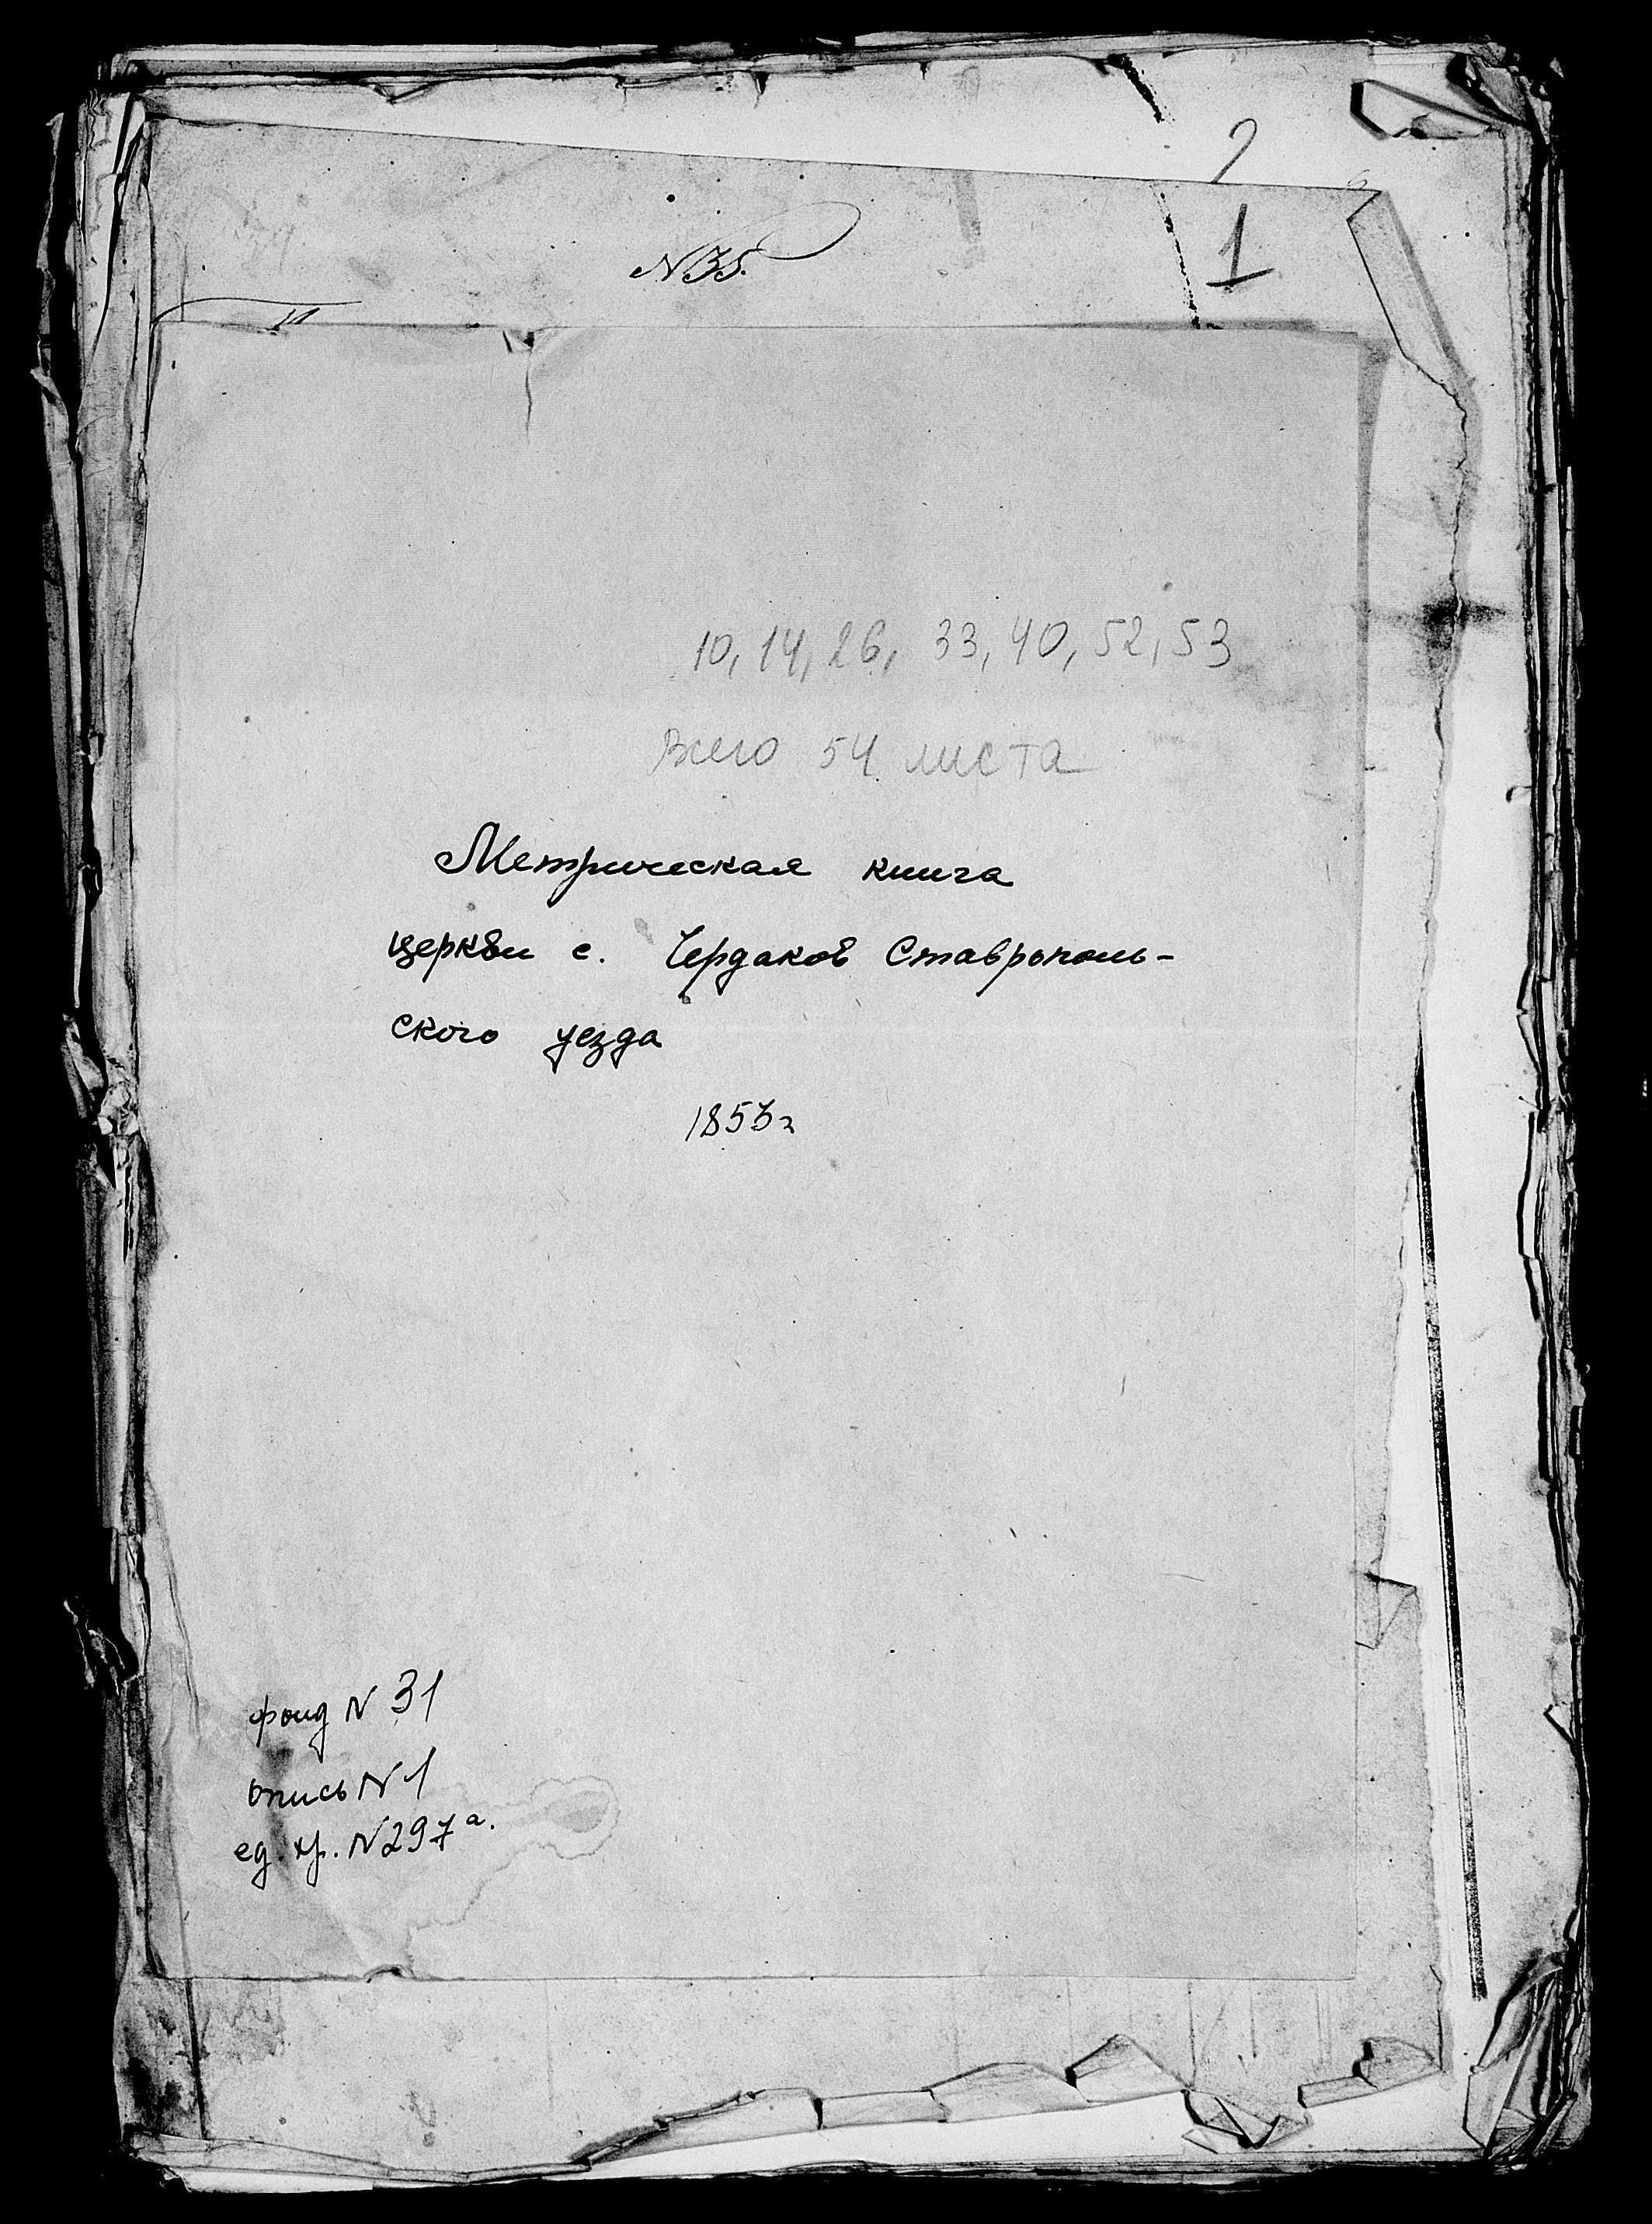 2
1
N 35.
10, 14, 26, 33, 40, 52, 53
Всего 54 листа
Метрическая книга
церкви с. Чердаков Ставрополь-
ского уезда
1853 г
фонд N 31
опись N 1
ед. хр. N 297а.